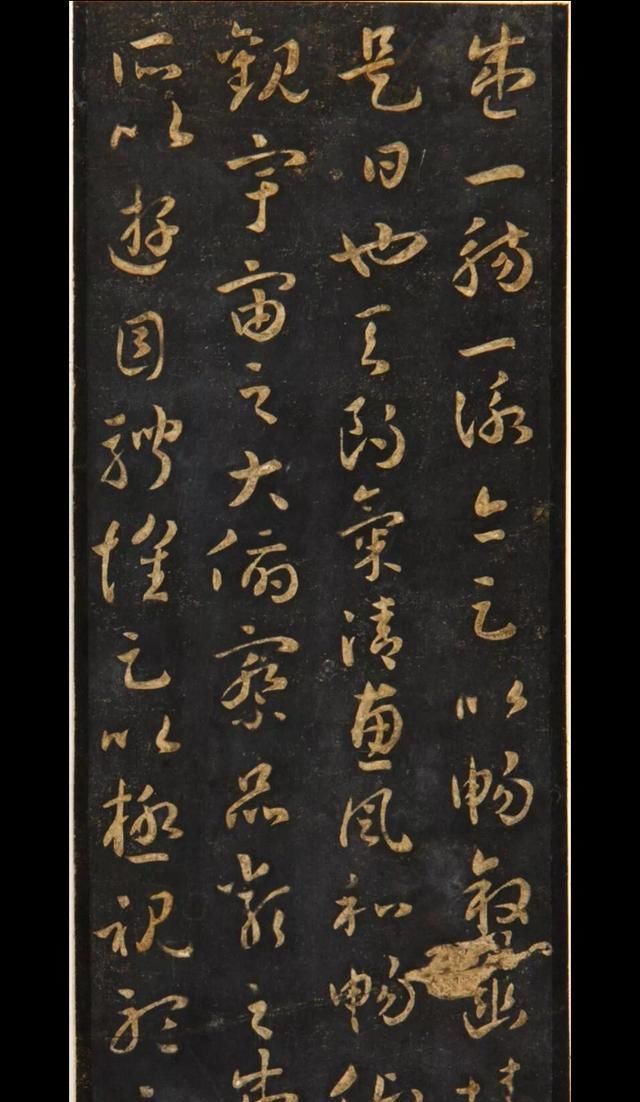 盛一觴一詠亦足以暢敘幽
是日也天朗氣清惠風和暢仰
觀宇宙之大俯察品類之盛
所以遊目騁懷足以極視聽